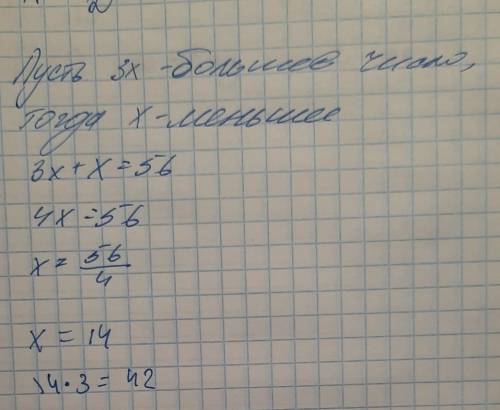 Пусть 3x - большее число,
тогда x - меньшее
3x + x = 56
4x = 56
x = 56/4
x = 14
14 · 3 = 42